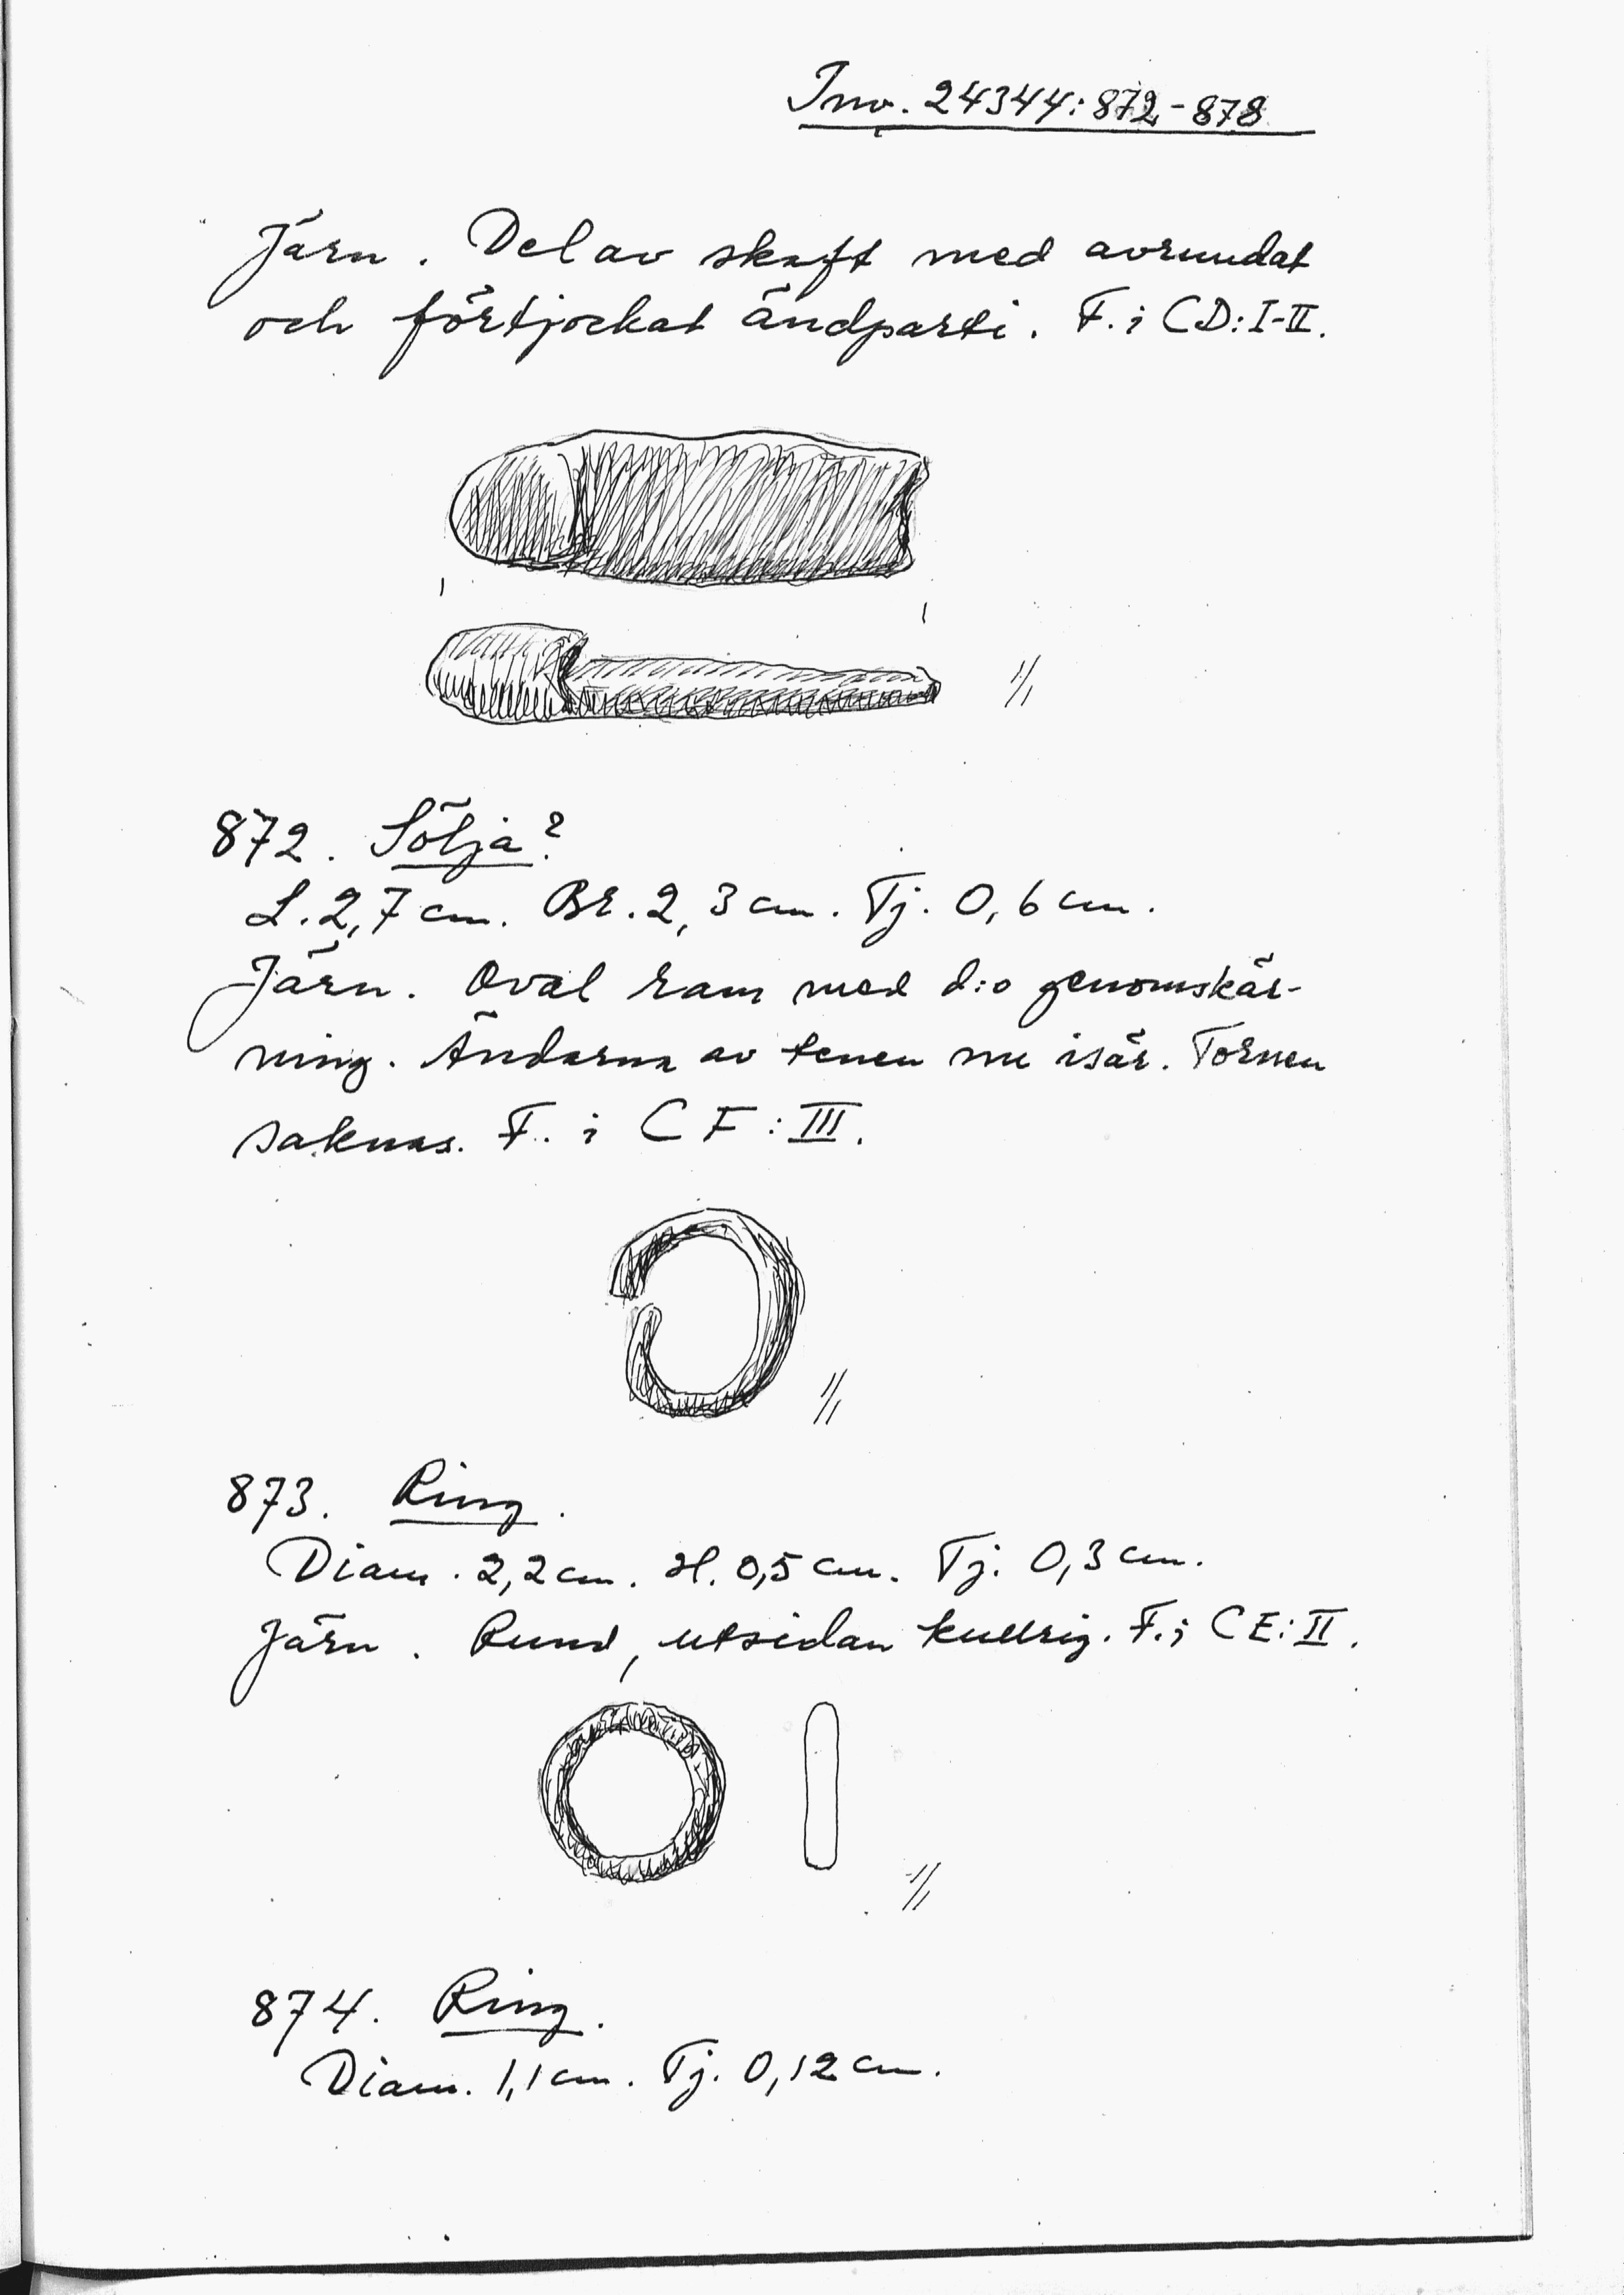 Inv. 24344:872-878
Järn. Del av skaft med avrundat
och förtjockat ändparti. F. i CD:I-II.
1/1
872. Sölja?
L. 2,7 cm. Br. 2,3 cm. Tj. 0,6 cm.
Järn. Oval ram med d:o genomskär-
ning. Ändarna av tenen nu isär. Tornen
saknas. F. i CF:III.
1/1
873. Ring.
Diam. 2,2 cm. H. 0,5 cm. Tj. 0,3 cm.
Järn. Rund, utsidan kullrig. F. i CE:II.
1/1
874. Ring.
Diam. 1,1 cm. Tj. 0,12 cm.